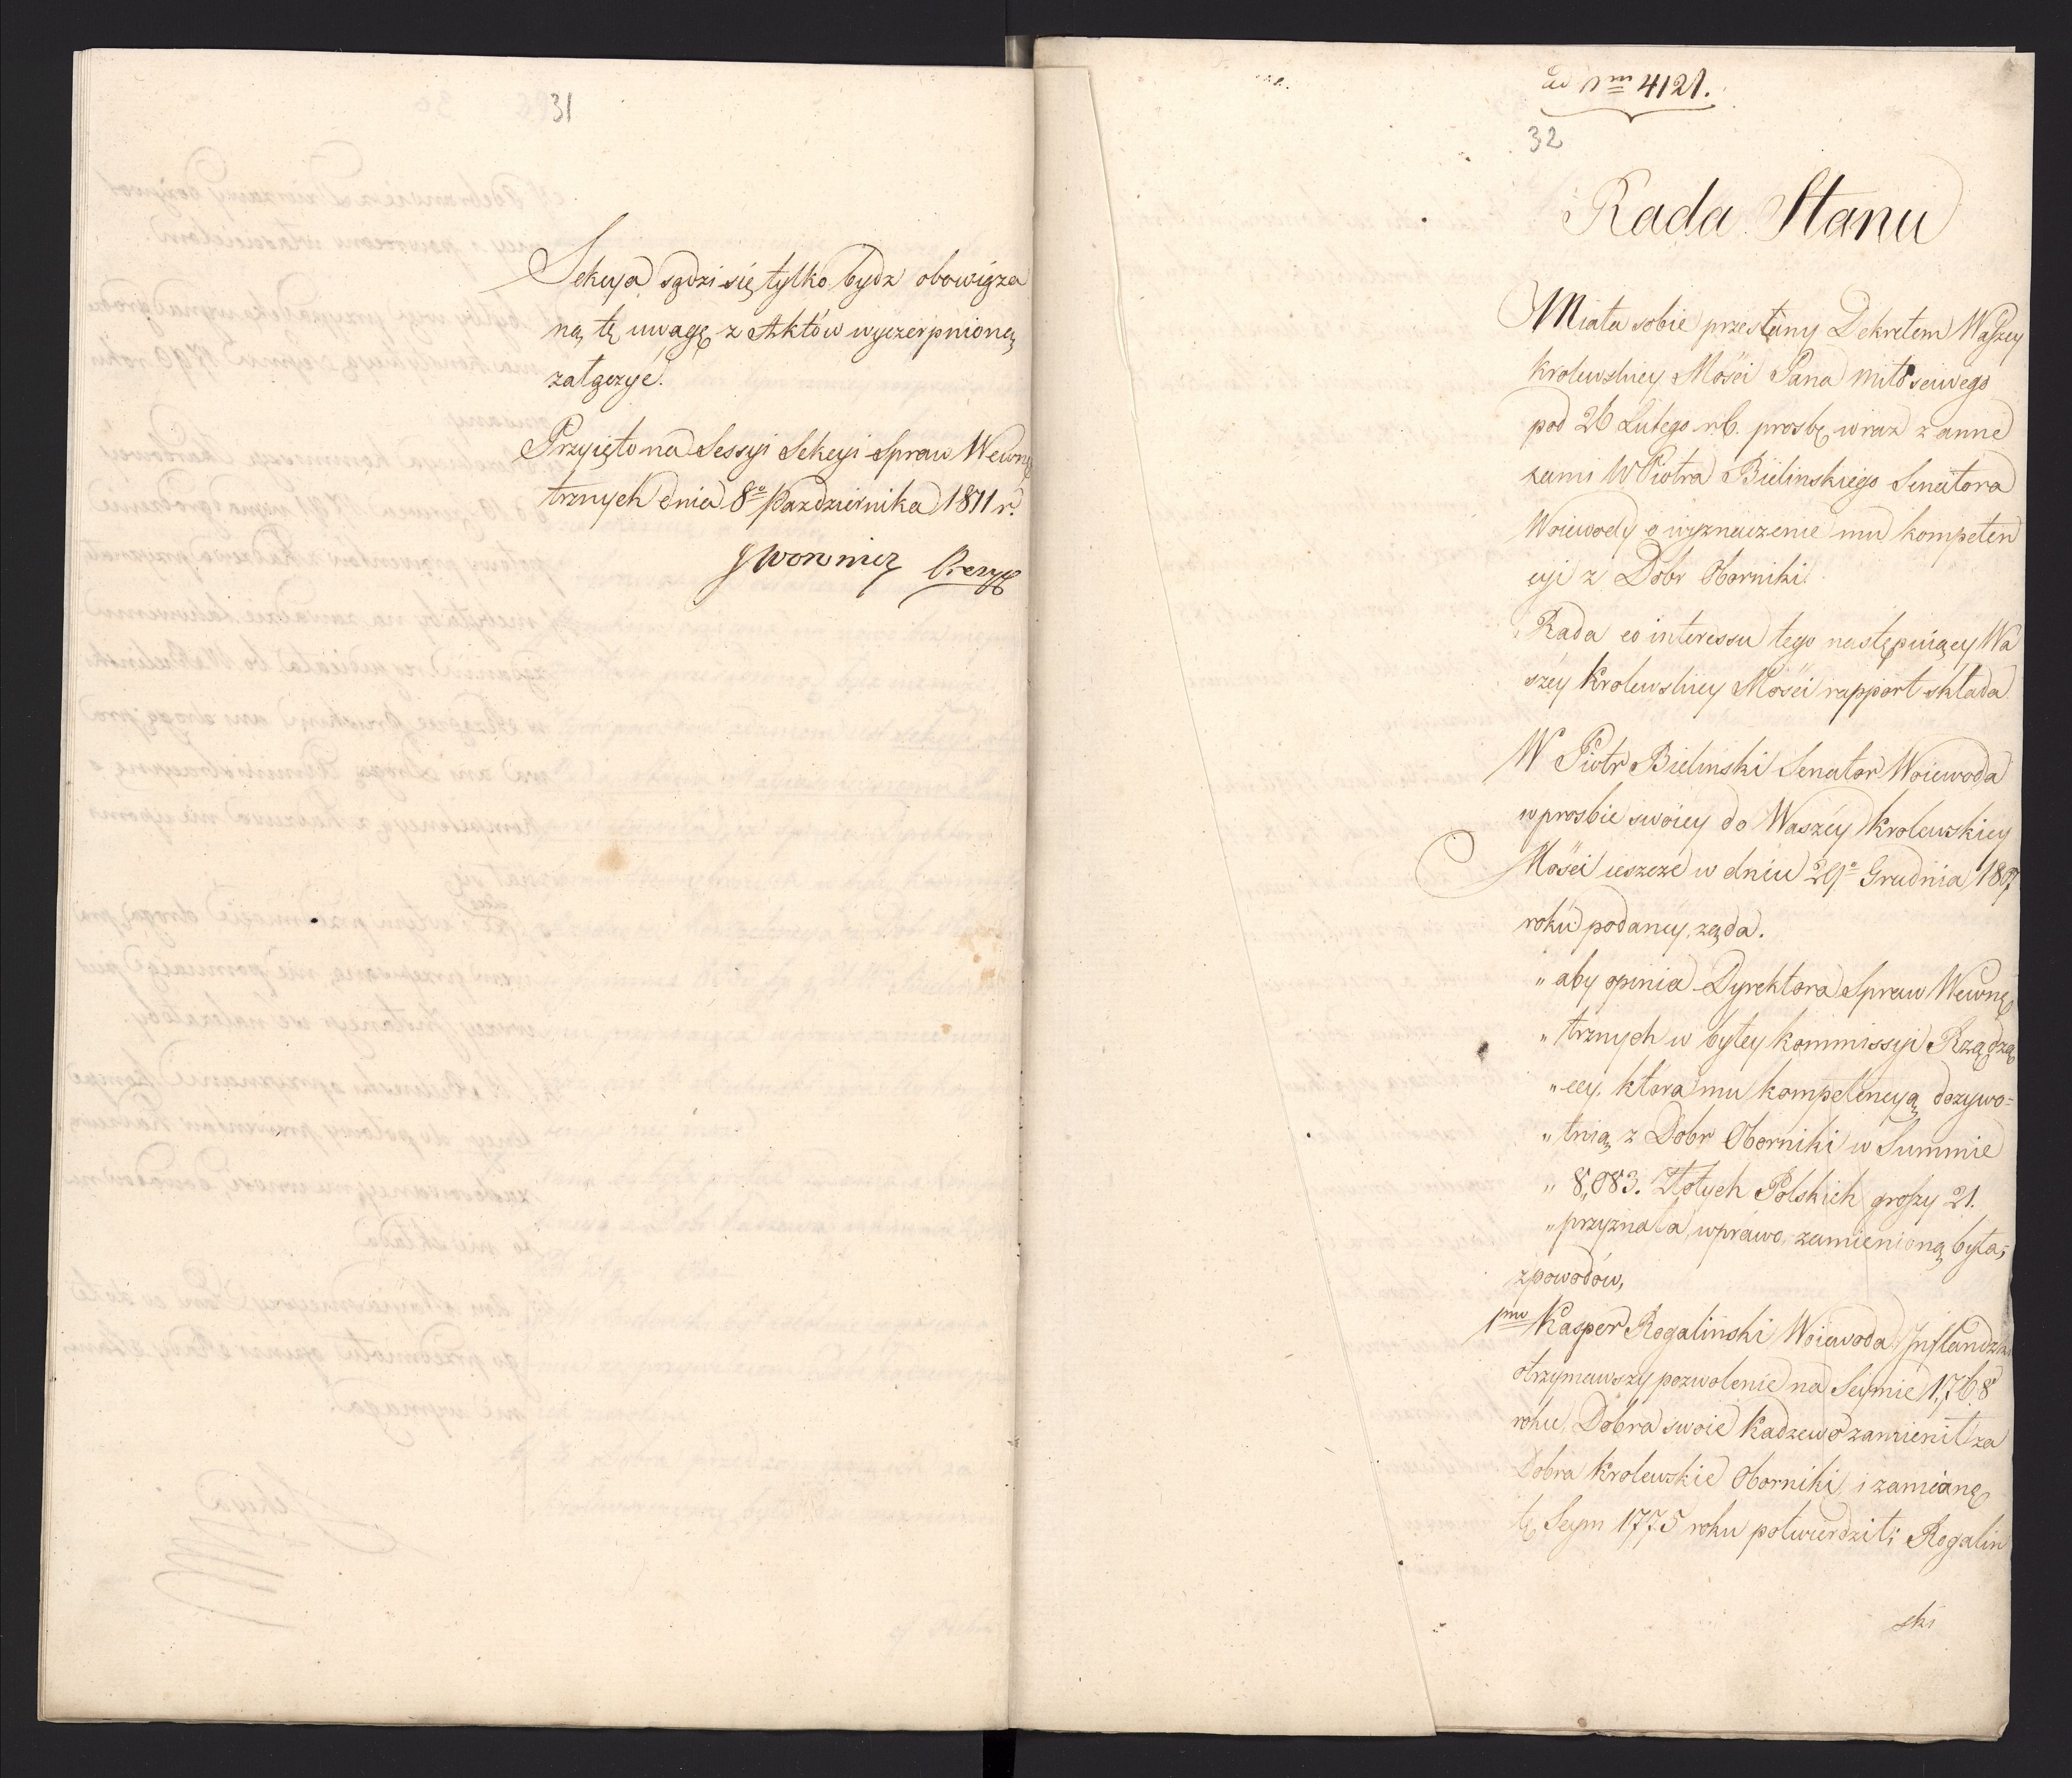 31
Sekcya sądzi się tylko bydź obowiąza
ną tę uwagę z Aktów wyczerpnioną
załączyć.
Przyięto na Sessyi Sekcyi Spraw Wewnę
trznych dnia 8º Pazdziernika 1811 r.
Woronicz Prezyd
ad Nrm 4121.
32
Rada Stanu
Miała sobie przesłany Dekretem Waszey
Krolewskiey Mości Pana miłościwego
pod 26 Lutego r. b. prosbę wraz z anne
xami W Piotra Bielinskiego Senatora
Woiewody o wyznaczenie mu kompeten
cyi z Dobr Oborniki.
Rada co interessu tego następuiący Wa
széy Krolewskiey Mości rapport składa.
W Piotr Bielinski Senator Woiewoda
w prosbie swoiey do Waszéy Krolewskiey
Mości ieszcze w dniu 29º Grudnia 1807
roku podaney, ząda.
„ aby opinia Dyrektora Spraw Wewnę
„ trznych w byłey Kommissyi Rządzą
„ cey. która mu kompetencyą dozywo=
„ tnią z Dobr Oborniki w Summie
„ 8,083. Złotych Polskich groszy 21.
„ przyznała, w prawo zamienioną była;
z powodów,
1mo Kasper Rogaliński Woiewoda Inflandzki
otrzymawszy pozwolenie na Seymie 1768
roku, Dobra swoie Kadzewo zamienił za
Dobra Krolewskie Oborniki i zamianę
tę Seym 1775 roku potwierdził; Rogalin
ski